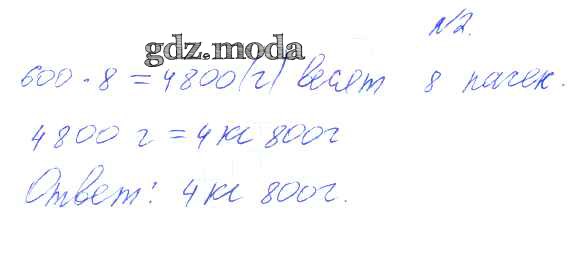 №2.
gdz.moda
600 · 8 = 4800 (г) весят 8 пачек.
4800 г = 4 кг 800 г
Ответ: 4 кг 800 г.